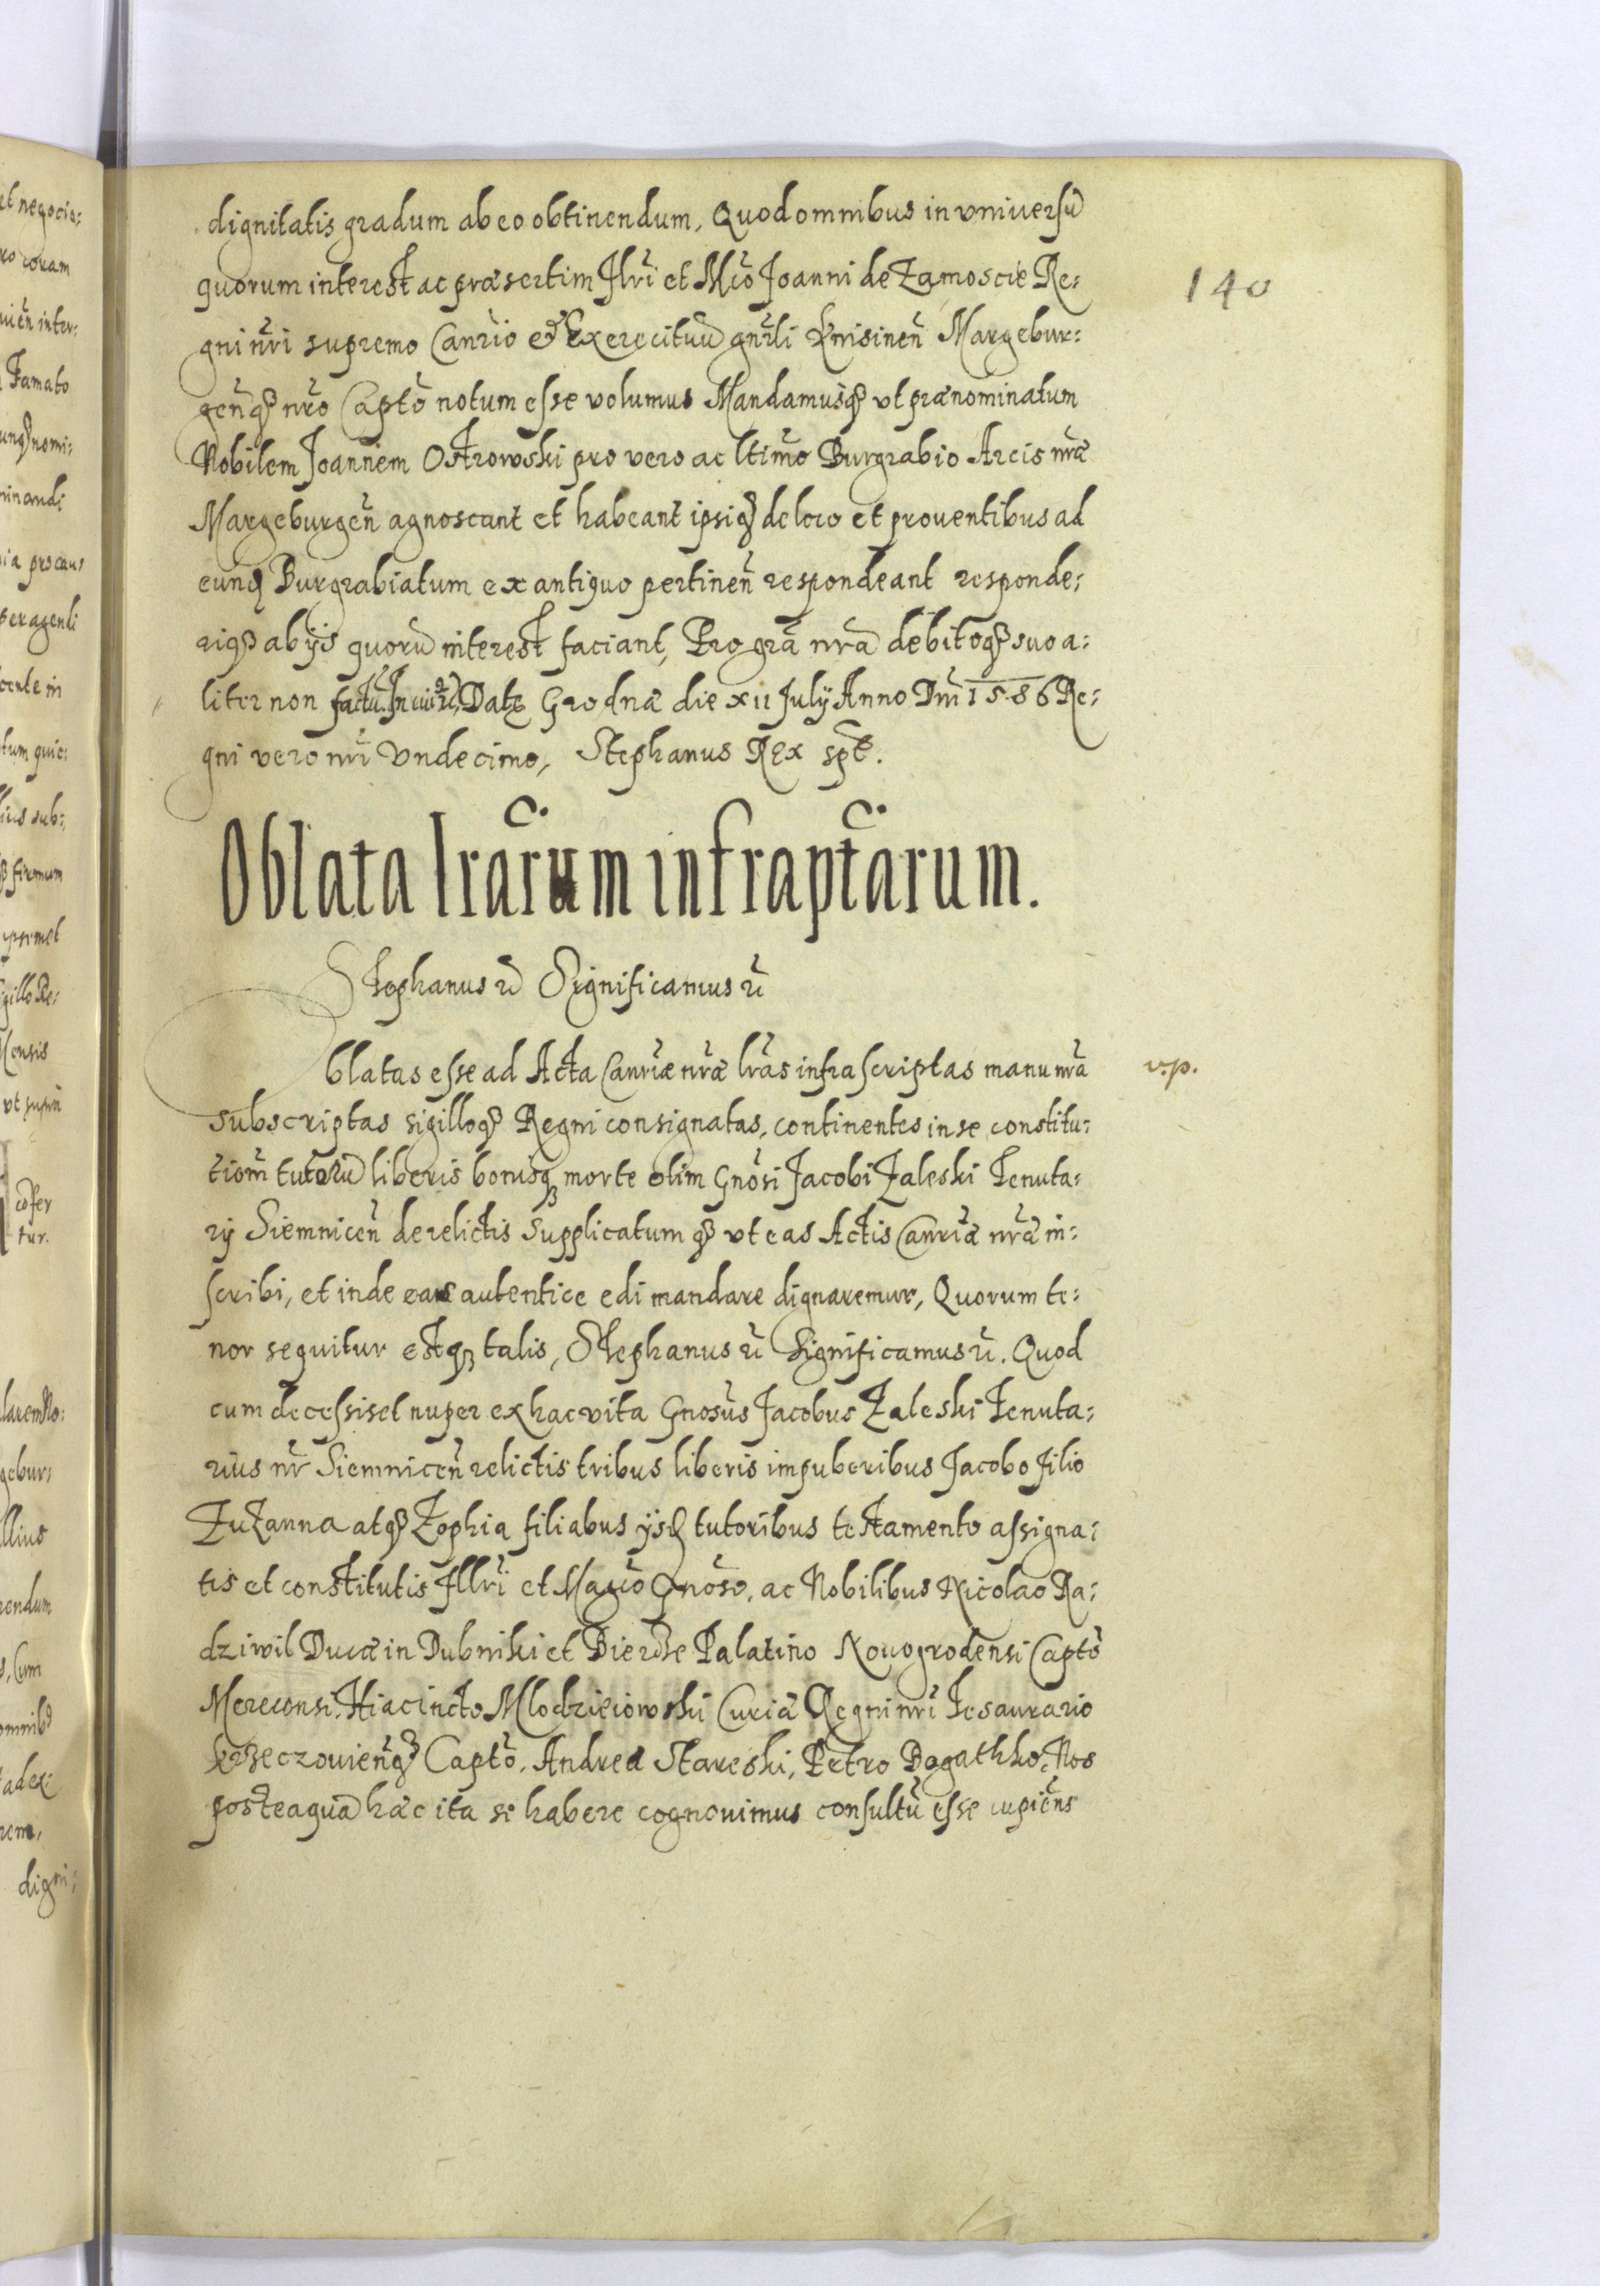 dignitatis gradum ab eo obtinendum, Quod omnibus in vniversū
quorum interest ac præsertim Jlrī et Mcō Joanni de Zamoscie Re:
140
gni nrī supremo Canrio et Exercituū gnrli Knisinen̄ Margebur:
gen̄q₃ nrō Captō notum esse volumus Mandamusq₃ vt prænominatum
Nobilem Joannem Ostrowski pro vero ac ltimō Burgrabio Arcis nræ
Margeburgen̄ agnoscant et habeant ipsiq₃ de loco et prouentibus ad
eunq Burgrabiatum ex antiquo pertinen̄ respondeant responde:
riq₃ ab ijs quorū interest faciant, Pro grā nrā debitoq₃ suo a:
liter non factū. In cui⁹ r̄, Datę Grodnæ die xii July Anno Dnī 1586 Re:
gni vero nrī Vndecimo, Stephanus Rex spt̄.
Oblata lrārum infraptārum.
Stephanus r̄ Significamus r̄
blatas esse ad Acta Canriæ nræ lrās infrascriptas manu nrā
v.p.
subscriptas sigilloq₃ Regni consignatas, continentes in se constitu:
tiom̄ tutorū liberis bonisq₃ morte olim Gnōsi Jacobi Zaleski Tenuta:
rij Siemnicen̄ derelictis Supplicatum q₃ vt eas Actis Canriæ nræ in:
scribi, et inde eas autentice edi mandare dignaremur, Quorum te:
nor sequitur estq₃ talis, Stephanus r̄ Significamus r̄. Quod
cum decessiset nuper ex hac vita Gnosūs Jacobus Zaleski Tenuta:
rius nr̄ Siemnicen̄ relictis tribus liberis impuberibus Jacobo filio
Zuzanna atq₃ Zophia filiabus ijsq tutoribus testamento assigna:
tis et constitutis Jllrī et Magcō Gnōso, ac Nobilibus Nicolao Ra:
dziwil Ducæ in Dubniki et Bierże Palatino Novogrodensi Captō
Merecensi, Hiacincto Mlodzieiowski Curiæ Regni nrī Tesaurario
Krzeczovien̄q₃ Captō, Andrea Stareski, Petro Bogathko, Nos
posteaquā hæc ita se habere cognouimus consultū esse cupien̄s